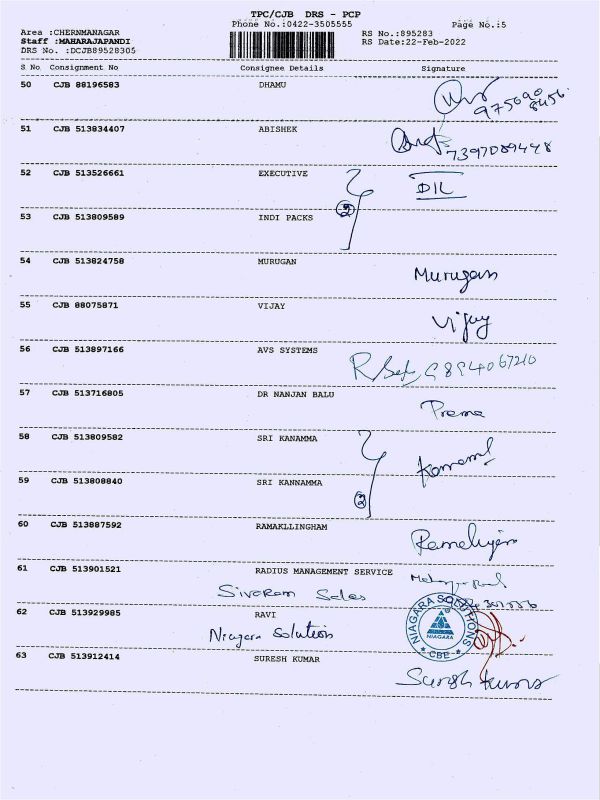 TPC/CJB DRS - PCP
Phone No.:0422-3505555
Page No.:5
Area :CHERNMANAGAR
Staff :MAHARAJAPANDI
DRS No. :DCJB89528305
RS No.:895283
RS Date:22-Feb-2022
S No Consignment No Consignee Details Signature
50 CJB 88196583 DHAMU
975090
8456
51 CJB 513834407 ABISHEK
7397089448
52 CJB 513526661 EXECUTIVE DIL
2
53 CJB 513809589 INDI PACKS
54 CJB 513824758 MURUGAN Murugan
55 CJB 88075871 VIJAY Vijay
56 CJB 513897166 AVS SYSTEMS
9894067210
57 CJB 513716805 DR NANJAN BALU Prema
58 CJB 513809582 SRI KANAMMA
59 CJB 513808840 SRI KANNAMMA
2
60 CJB 513887592 RAMAKLLINGHAM
61 CJB 513901521 RADIUS MANAGEMENT SERVICE
Sivaram Sales
62 CJB 513929985 RAVI
Niagara Solutions
NIAGARA SOLUTIONS
NIAGARA
CBE
63 CJB 513912414 SURESH KUMAR
Suresh Kumar